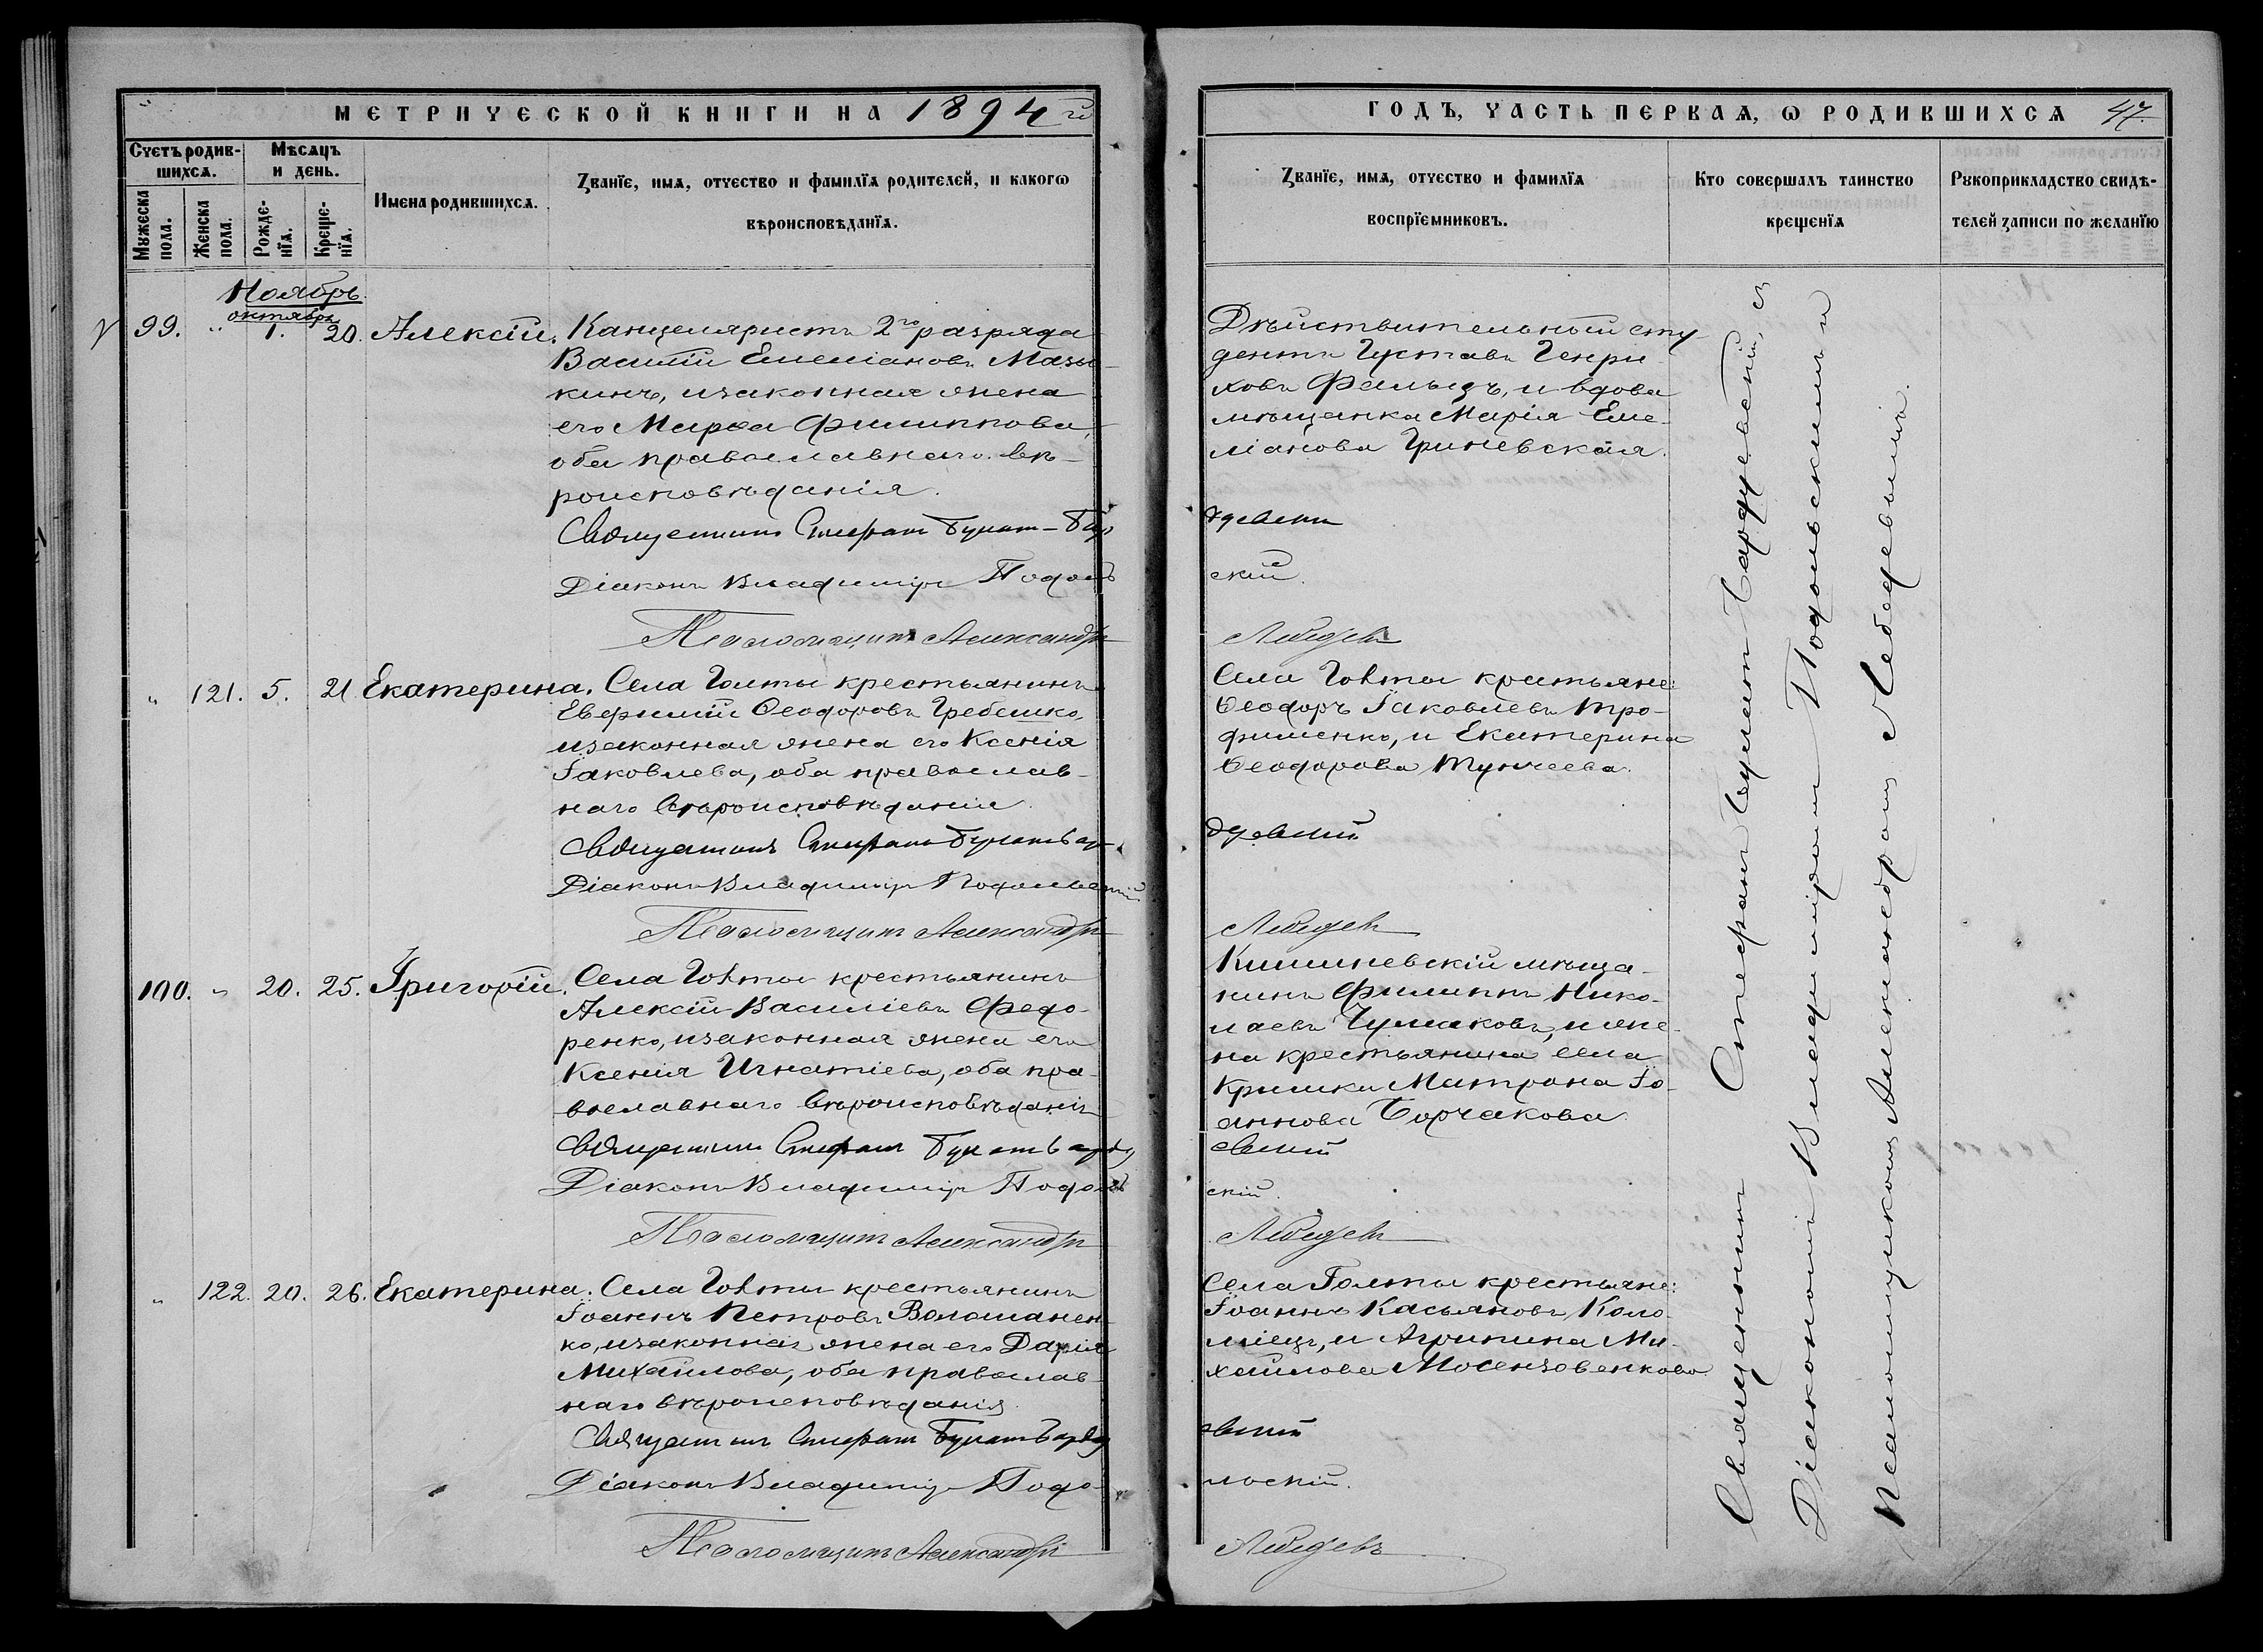 МЕТРИЧЕСКОЙ КНИГИ НА 1894 й
Счетъ родив-
шихся.
Мѣсяцъ
и день.
Мужеска
пола.
Женска
пола.
Рожде-
нїя.
Креще-
нїя.
Имена родившихся.
Званїе, имя, отчество и фамилїя родителей, и какогѡ
вѣроисповѣданїя.
Ноябрь.
октябрь
99. " 1. 20. Алексій.
Канцеляристъ 2го разряда
Василій Емеліановъ Мазы-
кинъ, и законная жена
его Марѳа Филиппова,
оба православнаго вѣ-
роисповѣданія.
Священникъ Стефанъ Булат-Бар
Діаконъ Владиміръ Подоль
Псаломщикъ Александръ
" 121. 5. 21 Екатерина.
Села Голты крестьянинъ
Евфимій Ѳеодоровъ Гребешко,
и законная жена его Ксенія
Іаковлева, оба православ-
наго вѣроисповѣданія
Священникъ Стефанъ Булатъ Бар-
Діаконъ Владиміръ Подольскій
Псаломщикъ Александръ
100. " 20. 25. Григорій.
Села Голты крестьянинъ
Алексій Василіевъ Федо-
ренко, и законная жена его
Ксенія Игнатіева, оба пра-
вославнаго вѣроисповѣданія
Священникъ Стефанъ Булатъ Барду
Діаконъ Владиміръ Подоль
Псаломщикъ Александръ
" 122. 20. 26. Екатерина.
Села Голты крестьянинъ
Іоаннъ Петровъ Волошанен-
ко, и законная жена его Дарія
Михайлова, оба православ-
наго вѣроисповѣданія.
Священникъ Стефанъ Булатъ Барду
Діаконъ Владиміръ Подо-
Псаломщикъ Александръ
ГОДЪ, ЧАСТЬ ПЕРВАЯ, Ѡ РОДИВШИХСЯ 47.
Званїе, имя, отчество и фамилїя
воспрїемниковъ.
Кто совершалъ таинство
крещенїя
Рукоприкладство свидѣ-
телей записи по желанїю
Дѣйствительный сту-
дентъ Густавъ Генри-
ховъ Фальцъ, и вдова
мѣщанка Марія Еме-
ліанова Гриневская.
дуевскій
скій.
Лебедевъ
Села Голты крестьяне:
Ѳеодоръ Іаковлевъ Тро-
фименко, и Екатерина
Ѳеодорова
дуевскій
Лебедевъ
Кишиневскій мѣща-
нинъ Филиппъ Нико-
лаевъ Чумаковъ, и же-
на крестьянина села
Кримки Матрона Іо-
аннова Борчакова.
евскій
скій.
Лебедевъ
Села Голты крестьяне:
Іоаннъ Касьяновъ Коло-
міецъ, и Агрипина Ми-
хайлова Мосензовенкова
евскій
льскій.
Лебедевъ
Священникъ Стефанъ Булатъ Бардуевскій, съ
Діакономъ Владиміромъ Подольскимъ и
Псаломщикомъ Александромъ Лебедевымъ.